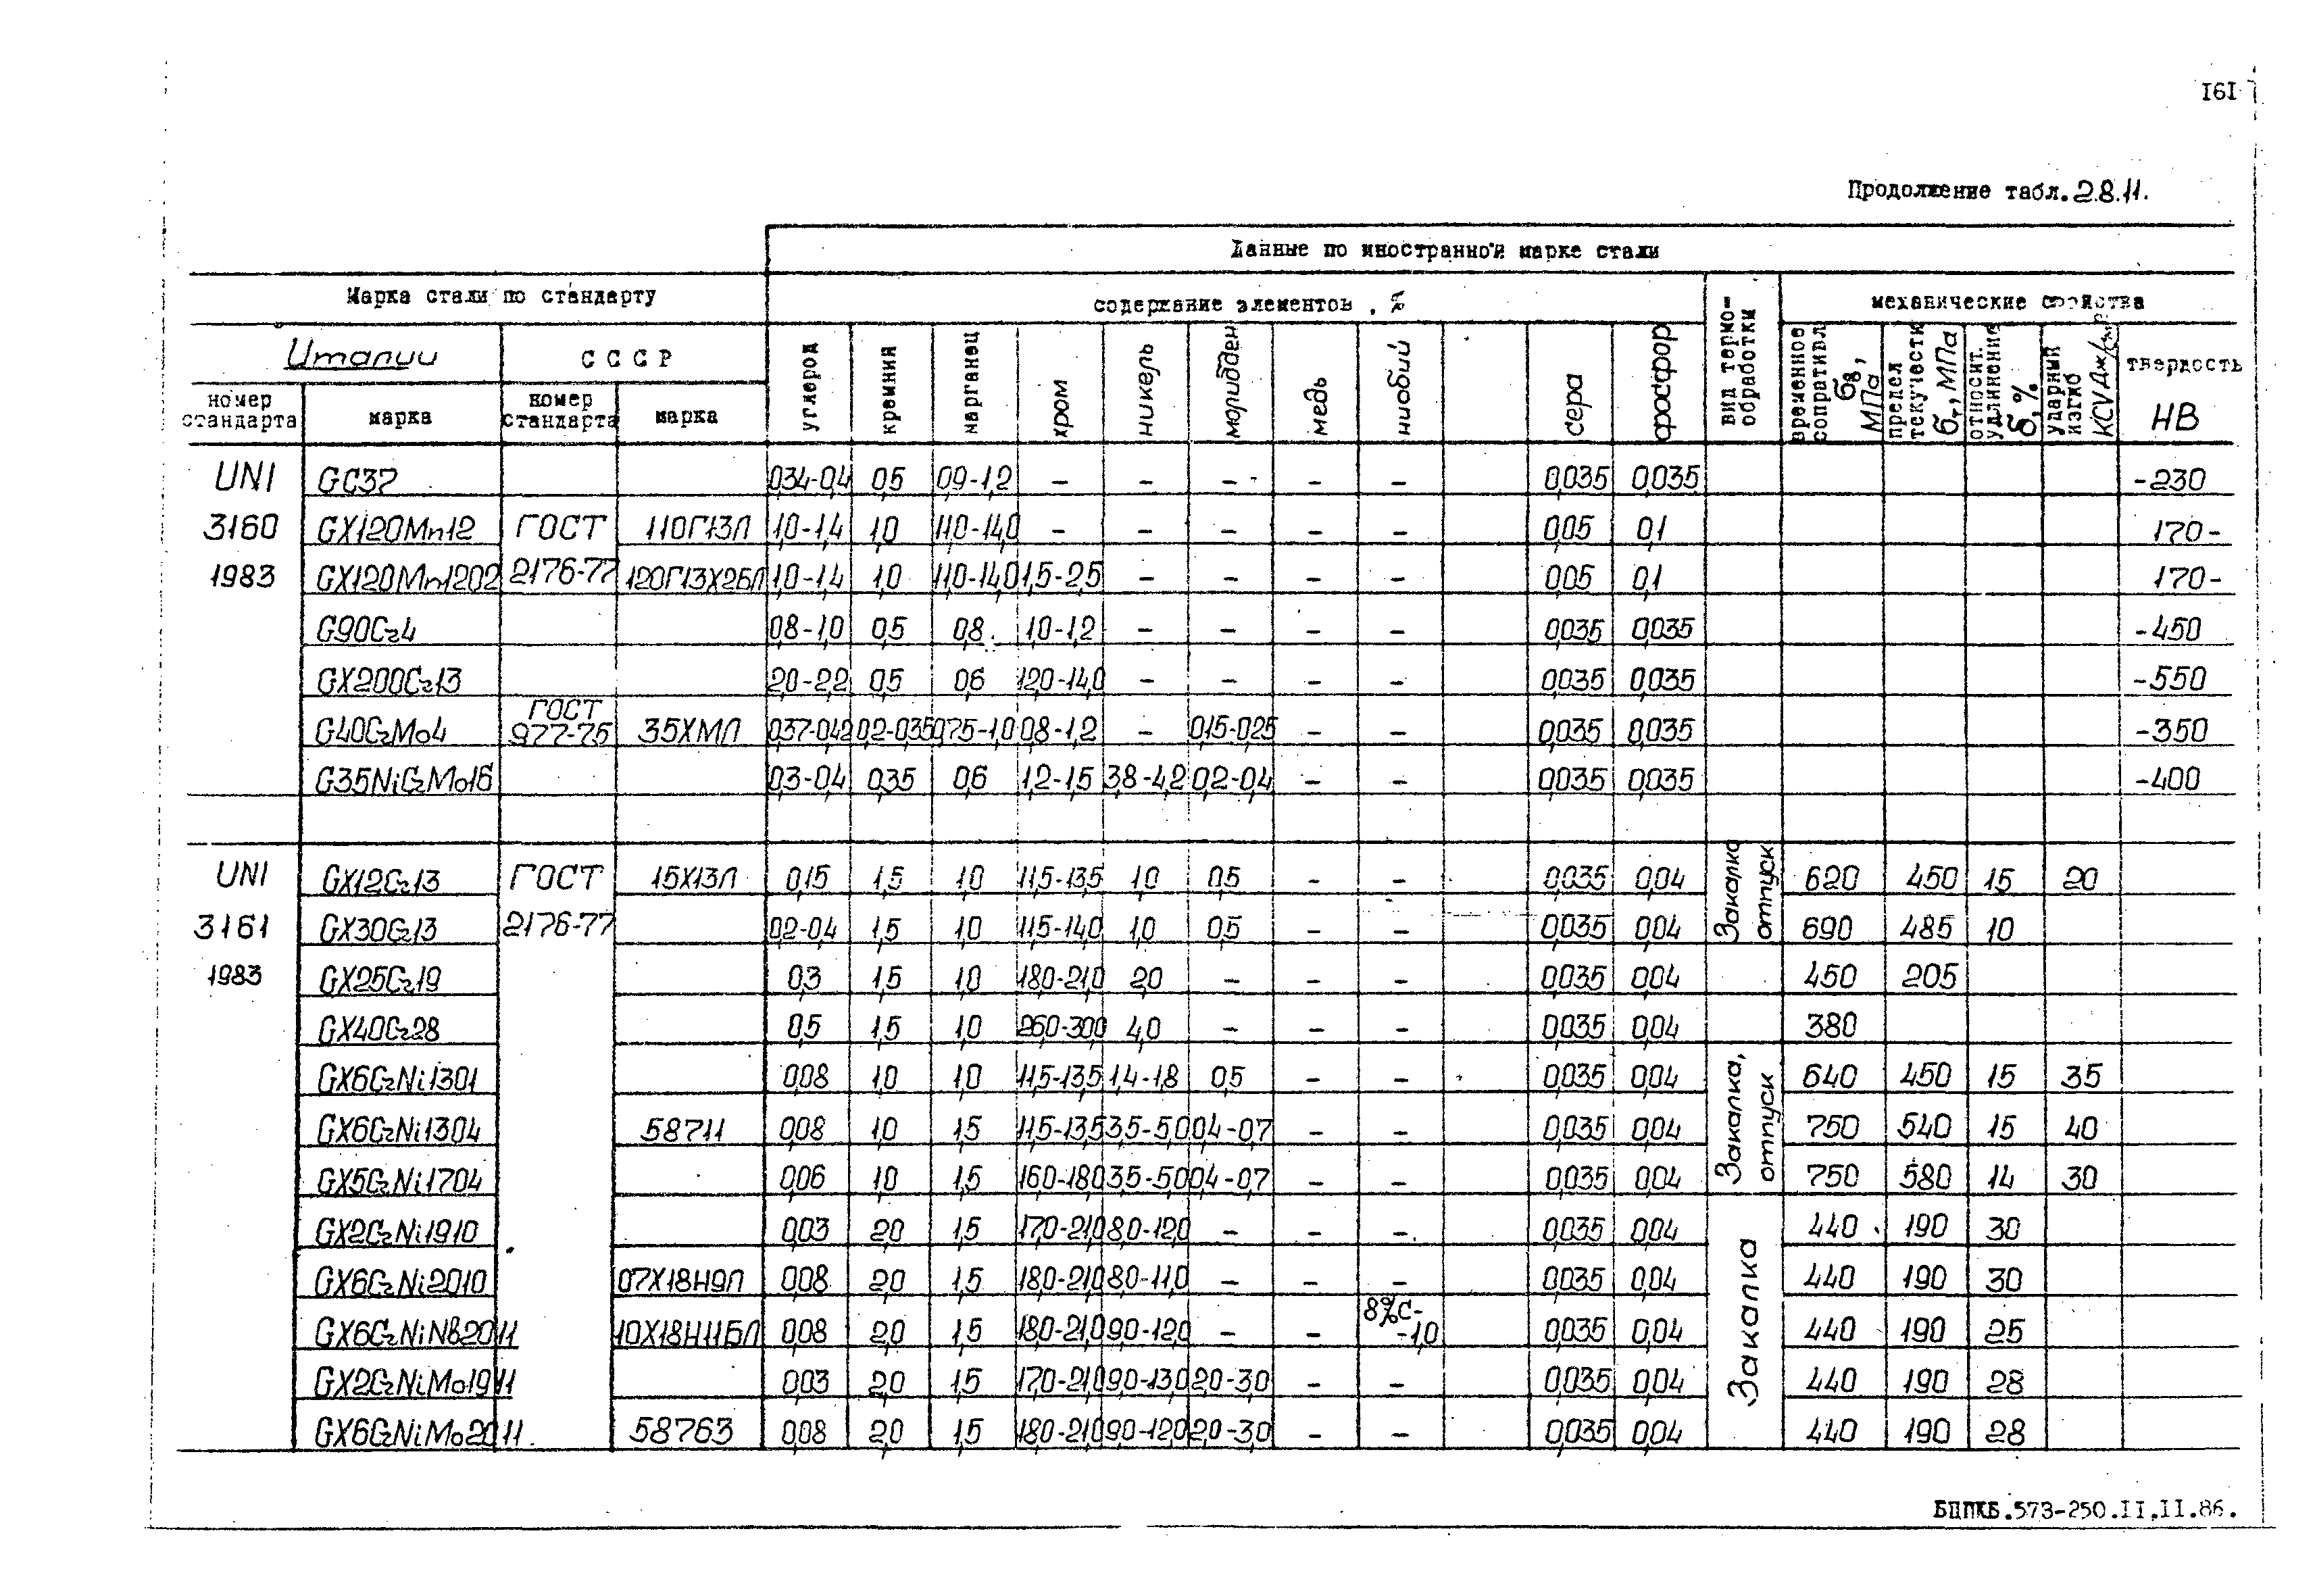 161
Продолжение табл. 2.8.11.
Данные по иностранной марке стали
Марка стали по стандарту
содержание элементов, %
вид термо-
обработки
механические свойства
Италии
СССР
номер
стандарта
марка
номер
стандарта
марка
углерод
кремния
марганец
хром
никель
молибден
медь
ниобий
сера
фосфор
временное
сопративл.
σв,
МПа
предел
текучести
σт, МПа
относит.
удлинение
δ, %
ударный
изгиб
KCV Дж/см²
твердость
HB
UNI 3160 1983
GC37 0,34-0,4 0,5 0,9-1,2 - - - - - 0,035 0,035 -230
GX120Mn12 ГОСТ 2176-77 110Г13Л 1,0-1,4 1,0 11,0-14,0 - - - - - 0,05 0,1 170-
GX120Mn1202 120Г13Х2БЛ 1,0-1,4 1,0 11,0-14,0 1,5-2,5 - - - - 0,05 0,1 170-
G90Cr4 0,8-1,0 0,5 0,8 1,0-1,2 - - - - 0,035 0,035 -450
GX200Cr13 2,0-2,2 0,5 0,6 12,0-14,0 - - - - 0,035 0,035 -550
G40CrMo4 ГОСТ 977-75 35ХМЛ 0,37-0,42 0,2-0,35 0,75-1,0 0,8-1,2 - 0,15-0,25 - - 0,035 0,035 -350
G35NiCrMo16 0,3-0,4 0,35 0,6 1,2-1,5 3,8-4,2 0,2-0,4 - - 0,035 0,035 -400
UNI 3161 1983
GX12Cr13 ГОСТ 2176-77 15Х13Л 0,15 1,5 1,0 11,5-13,5 1,0 0,5 - - 0,035 0,04 Закалка отпуск 620 450 15 20
GX30Cr13 0,2-0,4 1,5 1,0 11,5-14,0 1,0 0,5 - - 0,035 0,04 690 485 10
GX25Cr19 0,3 1,5 1,0 18,0-21,0 2,0 - - - 0,035 0,04 450 205
GX40Cr28 0,5 1,5 1,0 26,0-30,0 4,0 - - - 0,035 0,04 380
GX6CrNi1301 0,08 1,0 1,0 11,5-13,5 1,4-1,8 0,5 - - 0,035 0,04 Закалка, отпуск 640 450 15 35
GX6CrNi1304 58711 0,08 1,0 1,5 11,5-13,5 3,5-5,0 0,4-0,7 - - 0,035 0,04 750 540 15 40
GX5CrNi1704 0,06 1,0 1,5 16,0-18,0 3,5-5,0 0,4-0,7 - - 0,035 0,04 750 580 14 30
GX2CrNi1910 0,03 2,0 1,5 17,0-21,0 8,0-12,0 - - - 0,035 0,04 Закалка 440 190 30
GX6CrNi2010 07Х18Н9Л 0,08 2,0 1,5 18,0-21,0 8,0-11,0 - - - 0,035 0,04 440 190 30
GX6CrNiNb2011 10Х18Н11БЛ 0,08 2,0 1,5 18,0-21,0 9,0-12,0 - - 8%С-1,0 0,035 0,04 440 190 25
GX2CrNiMo1911 0,03 2,0 1,5 17,0-21,0 9,0-13,0 2,0-3,0 - - 0,035 0,04 440 190 28
GX6CrNiMo2011 58763 0,08 2,0 1,5 18,0-21,0 9,0-12,0 2,0-3,0 - - 0,035 0,04 440 190 28
БЦПКБ.573-250.II.II.86.